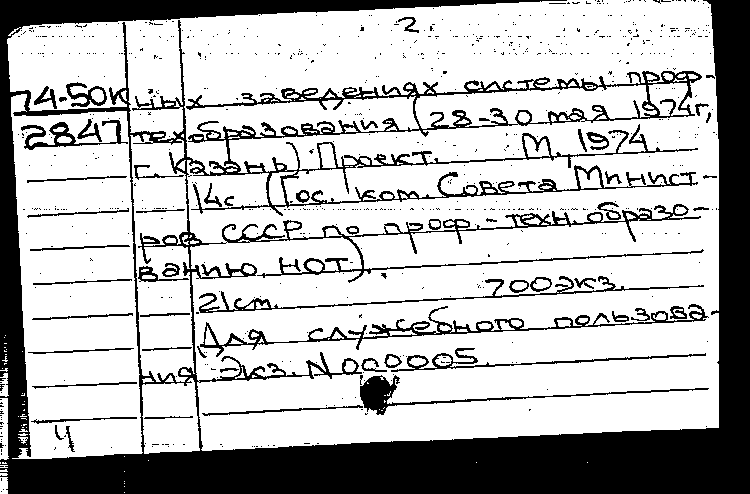 2
74-50к ных заведениях системы проф-
2847 техобразования. (28-30 мая 1974г,
г. Казань). Проект. М., 1974.
14с. (Гос. ком. Совета Минист-
ров СССР по проф.-техн. образо-
ванию. НОТ).
21см. 700экз.
Для служебного пользова-
ния. Экз. N 000005.
4